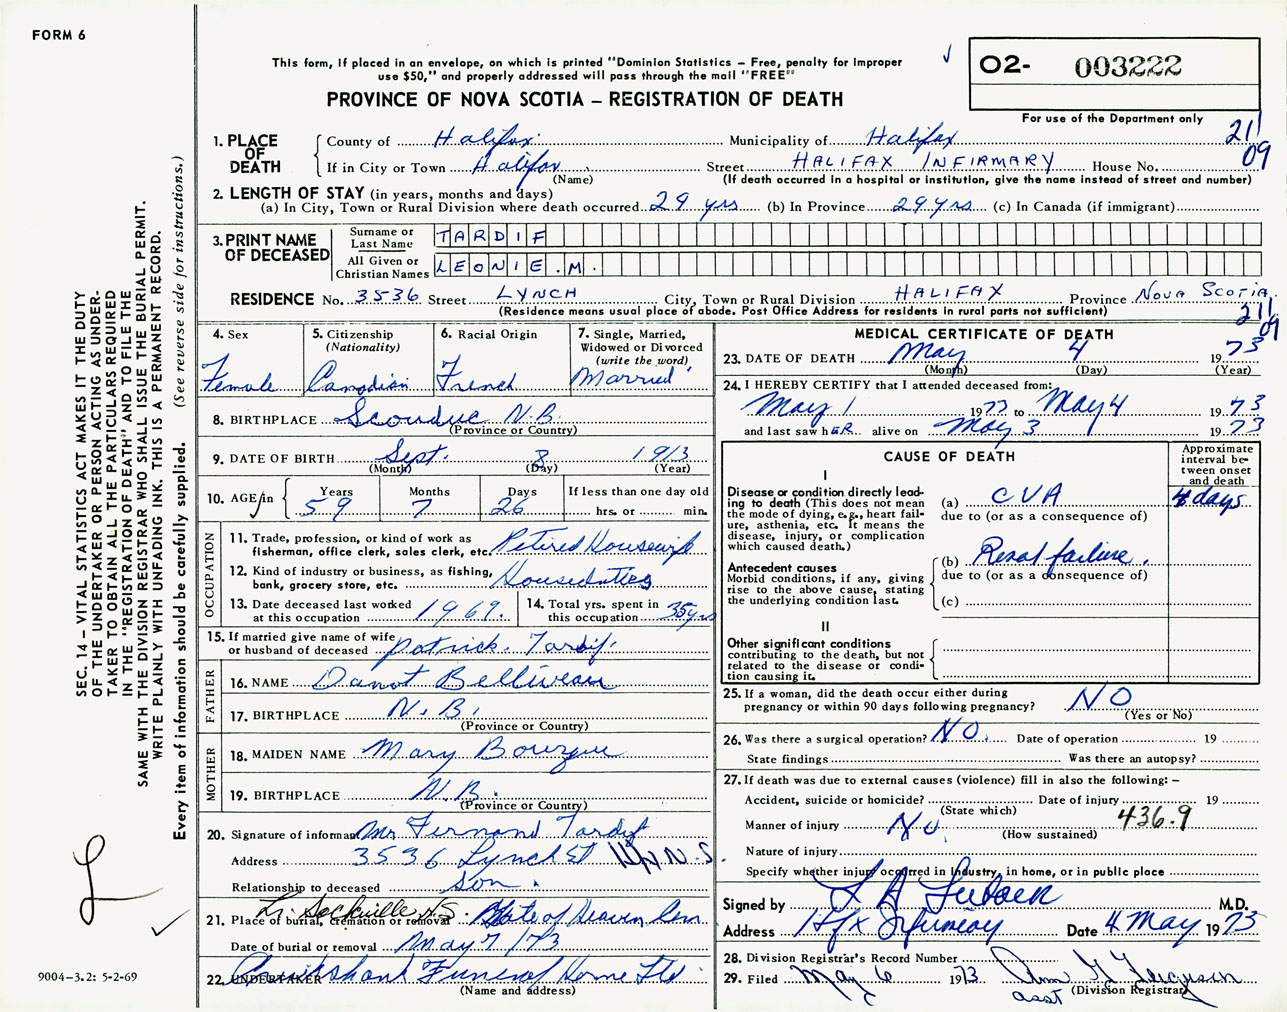 FORM 6
This form, if placed in an envelope, on which is printed "Dominion Statistics – Free, penalty for improper
use $50," and properly addressed will pass through the mail "FREE"
PROVINCE OF NOVA SCOTIA – REGISTRATION OF DEATH
02- 003222
For use of the Department only
211
09
1. PLACE OF DEATH
County of Halifax Municipality of Halifax
If in City or Town Halifax Street HALIFAX INFIRMARY House No.
(Name) (If death occurred in a hospital or institution, give the name instead of street and number)
2. LENGTH OF STAY (in years, months and days)
(a) In City, Town or Rural Division where death occurred 29 yrs (b) In Province 29 yrs (c) In Canada (if immigrant)
3. PRINT NAME OF DECEASED
Surname or Last Name TARDIF
All Given or Christian Names LEONIE.M.
RESIDENCE No. 3536 Street LYNCH City, Town or Rural Division HALIFAX Province NOVA SCOTIA.
(Residence means usual place of abode. Post Office Address for residents in rural parts not sufficient)
211
09
4. Sex
Female
5. Citizenship (Nationality)
Canadian
6. Racial Origin
French
7. Single, Married, Widowed or Divorced (write the word)
Married
8. BIRTHPLACE Scouduc N.B.
(Province or Country)
9. DATE OF BIRTH Sept. 8 1913
(Month) (Day) (Year)
10. AGE in
Years Months Days If less than one day old
59 7 26 hrs. or min.
OCCUPATION
11. Trade, profession, or kind of work as
fisherman, office clerk, sales clerk, etc. Retired Housewife
12. Kind of industry or business, as fishing,
bank, grocery store, etc. Houseduties
13. Date deceased last worked
at this occupation 1969.
14. Total yrs. spent in
this occupation 35 yrs
15. If married give name of wife
or husband of deceased Patrick Tardif.
FATHER
16. NAME Danot Belliveau
17. BIRTHPLACE N.B.
(Province or Country)
MOTHER
18. MAIDEN NAME Mary Bourque
19. BIRTHPLACE N.B.
(Province or Country)
20. Signature of informant Mr Fernand Tardif
Address 3536 Lynch St Hfx N.S.
Relationship to deceased Son.
21. Place of burial, cremation or removal Lr. Sackville N.S. Gate of Heaven Cem
Date of burial or removal May 7/73
22. UNDERTAKER Cruikshank Funeral Home Ltd.
(Name and address)
MEDICAL CERTIFICATE OF DEATH
23. DATE OF DEATH May 4 1973
(Month) (Day) (Year)
24. I HEREBY CERTIFY that I attended deceased from:
May 1 1973 to May 4 1973
and last saw hER alive on May 3 1973
CAUSE OF DEATH
Approximate interval between onset and death
I
Disease or condition directly leading
to death (This does not mean
the mode of dying, e.g., heart failure,
asthenia, etc. It means the
disease, injury, or complication
which caused death.)
(a) CVA 4 days
due to (or as a consequence of)
Antecedent causes
Morbid conditions, if any, giving
rise to the above cause, stating
the underlying condition last.
(b) Renal failure.
due to (or as a consequence of)
(c)
II
Other significant conditions
contributing to the death, but not
related to the disease or condition
causing it.
25. If a woman, did the death occur either during
pregnancy or within 90 days following pregnancy? NO
(Yes or No)
26. Was there a surgical operation? NO. Date of operation 19
State findings Was there an autopsy?
27. If death was due to external causes (violence) fill in also the following: –
Accident, suicide or homicide? Date of injury 19
(State which) 436.9
Manner of injury No.
(How sustained)
Nature of injury
Specify whether injury occurred in Industry, in home, or in public place
Signed by M.D.
Address Hfx Infirmary Date 4 May 1973
28. Division Registrar's Record Number
29. Filed May 6 1973 Ferguson
asst (Division Registrar)
SEC. 14 – VITAL STATISTICS ACT MAKES IT THE DUTY
OF THE UNDERTAKER OR PERSON ACTING AS UNDERTAKER
TO OBTAIN ALL THE PARTICULARS REQUIRED
IN THE "REGISTRATION OF DEATH" AND TO FILE THE
SAME WITH THE DIVISION REGISTRAR WHO SHALL ISSUE THE BURIAL PERMIT.
WRITE PLAINLY WITH UNFADING INK. THIS IS A PERMANENT RECORD.
Every item of information should be carefully supplied. (See reverse side for instructions.)
L
9004-3.2: 5-2-69